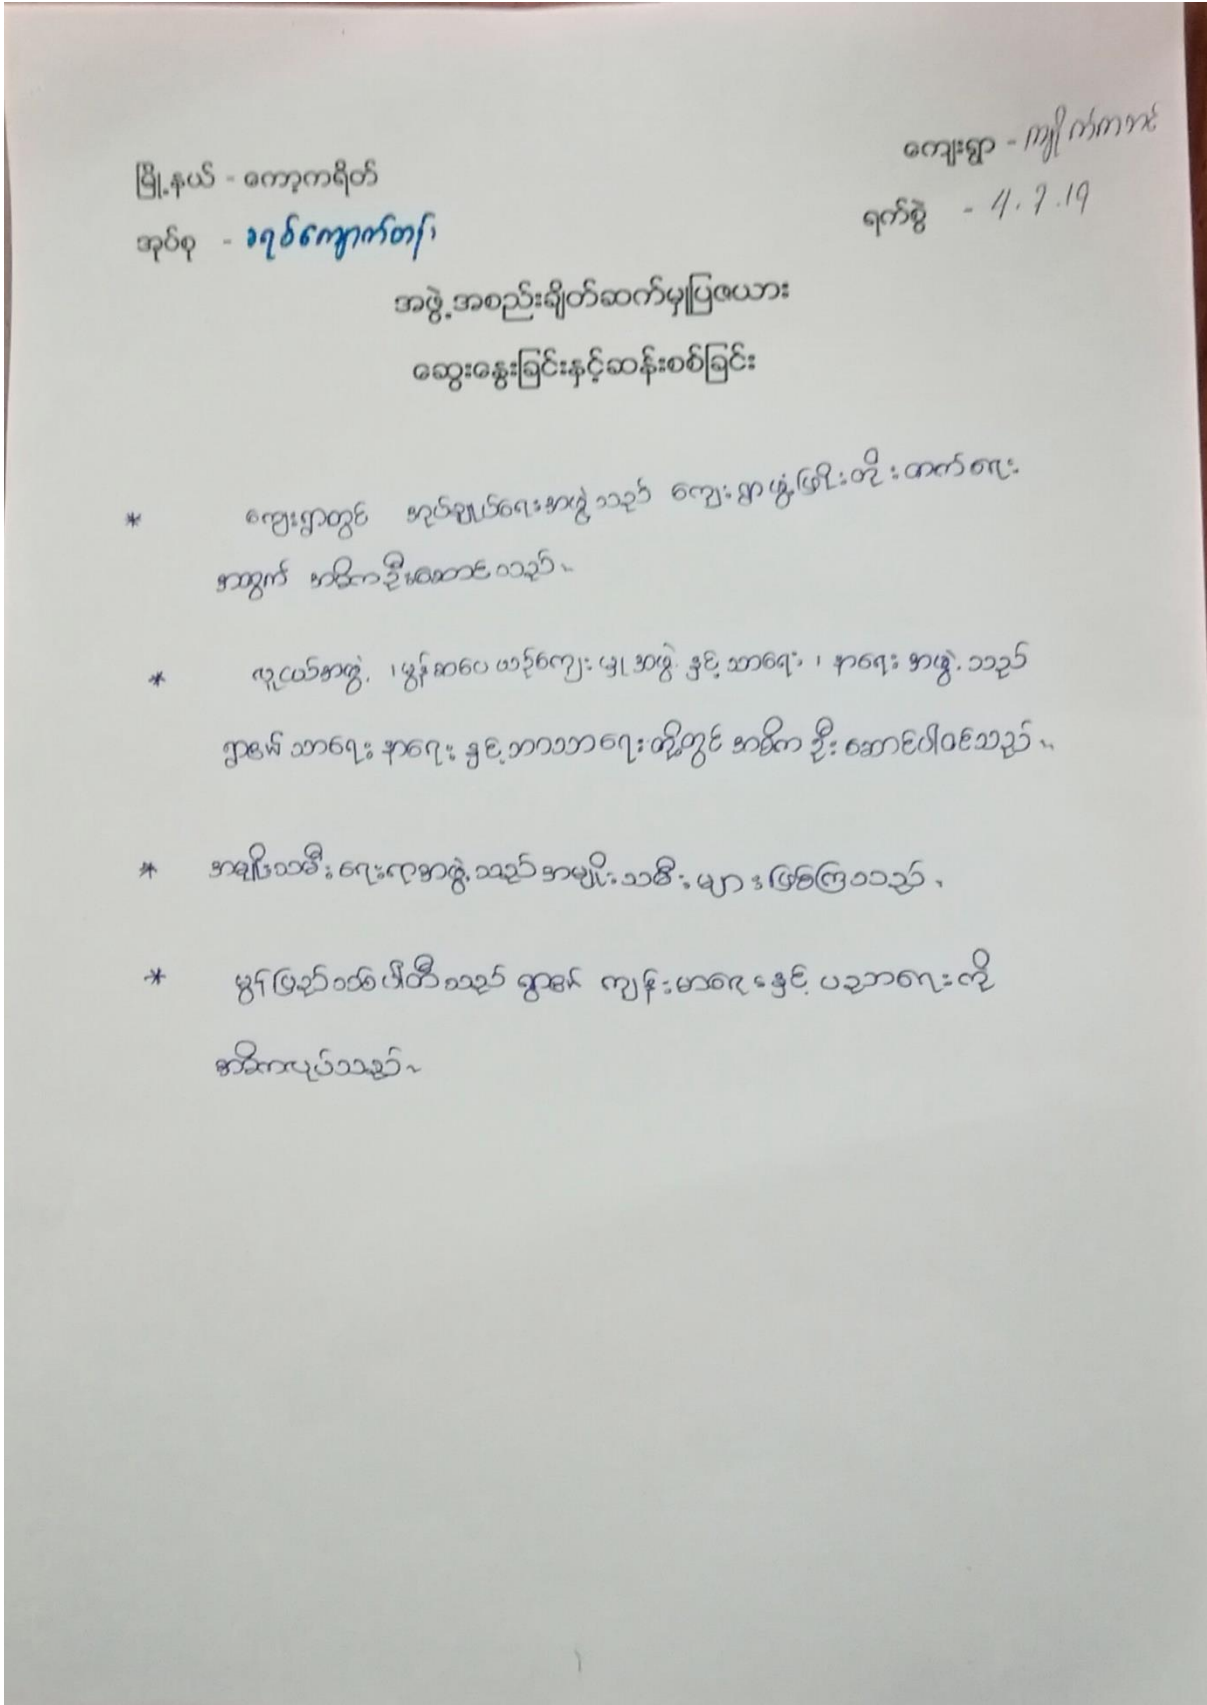 မြို့နယ် - ကော့ကရိတ်
ကျေးရွာ - ကျိုက်ကဘင်
အုပ်စု - ခရစ်ကျောက်တန်း
ရက်စွဲ - 4.7.19
အဖွဲ့အစည်းချိတ်ဆက်မှုပြဇယား
ဆွေးနွေးခြင်းနှင့်ဆန်းစစ်ခြင်း
* ကျေးရွာတွင် အုပ်ချုပ်ရေးအဖွဲ့သည် ကျေးရွာဖွံ့ဖြိုးတိုးတက်ရေး
အတွက် အဓိကဦးဆောင်သည်။
* လူငယ်အဖွဲ့ ၊ မွန်စာပေယဉ်ကျေးမှုအဖွဲ့ နှင့် သာရေး ၊ နာရေး အဖွဲ့သည်
ရွာ၏ သာရေး နာရေး နှင့် ဘာသာရေးတို့တွင် အဓိက ဦးဆောင်ပါဝင်သည်။
* အမျိုးသမီးရေးရာအဖွဲ့သည် အမျိုးသမီးများဖြစ်ကြသည်။
* မွန်ပြည်သစ်ပါတီသည် ရွာ၏ ကျန်းမာရေးနှင့် ပညာရေးကို
အဓိကလုပ်သည်။